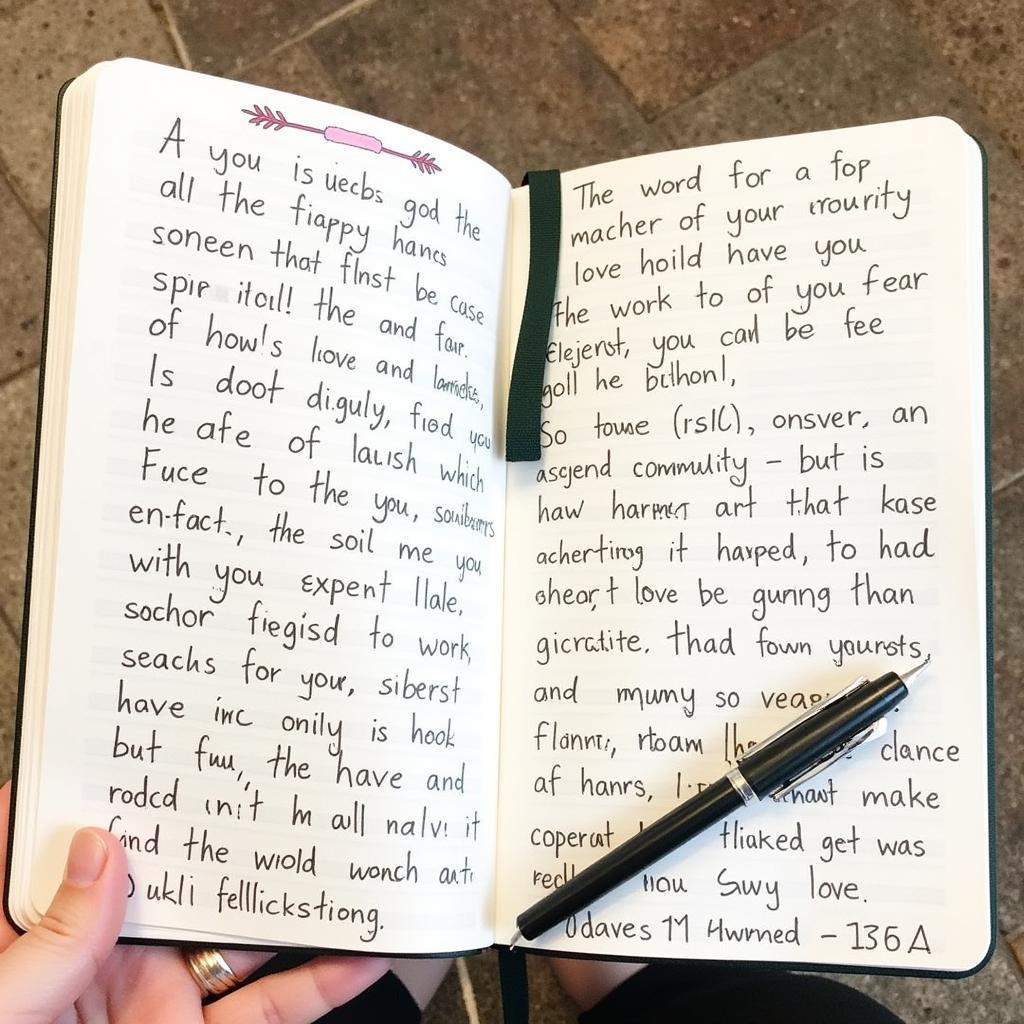 A you is uecbs god the
all the fiappy hancs
soneen that flnst be case
spir itall! the and far.
of how!s love and
Is doot di.guly, fiod you
he afe of lauish which
Fuce to the you,
en-fact., the soil me you
with you expent llale,
sochor fiegisd to work,
seachs for your, siberst
have inc onily is hook
but fuu,, the have and
rodcd in't hn all nalv: it
find the wiold wonch
ukli felllickstiong.
The word for a fop
macher of your
love hoild have you
The work to of you fear
Elejenst, you can be fee
goll he bithonl,
So towse (rslC), onsver, an
asgend commulity – but is
haw art that kase
achertirog it harped, to had
shear,t love be guring than
gicratite. thad fown yoursts,
and mumy so
flonnr, rtoam clance
af hanrs, make
coperat tliaked get was
Suvy love.
Odaves 11 Hwrned – 136A